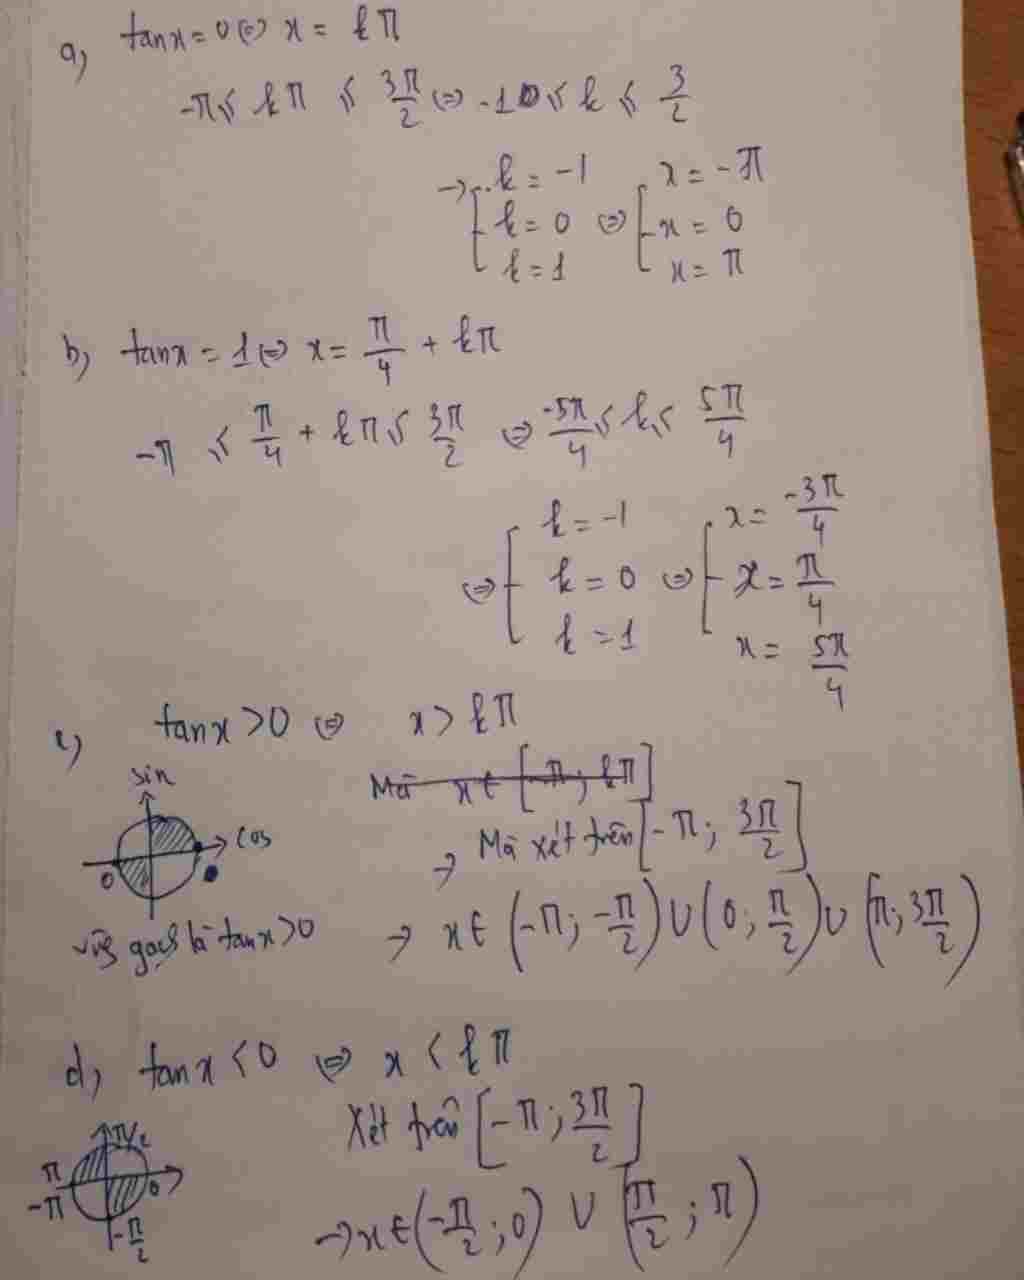 a) tanx = 0 ⇔ x = kπ
-π ≤ kπ ≤ 3π/2 ⇔ -1 ≤ k ≤ 3/2
→ [ k = -1 k = 0 k = 1 ⇔ [ x = -π x = 0 x = π
b) tanx = 1 ⇔ x = π/4 + kπ
-π ≤ π/4 + kπ ≤ 3π/2 ⇔ -5π/4 ≤ k ≤ 5π/4
⇔ [ k = -1 k = 0 k = 1 ⇔ [ x = -3π/4 x = π/4 x = 5π/4
c) tanx > 0 ⇔ x > kπ
Mà x ∈ [-π; kπ]
sin
cos
0
→ Mà xét trên [-π; 3π/2]
vùg gạch là tanx > 0
→ x ∈ (-π; -π/2) ∪ (0; π/2) ∪ (π; 3π/2)
d) tanx < 0 ⇔ x < kπ
Xét trên [-π; 3π/2]
π/2
π
-π
0
-π/2
→ x ∈ (-π/2; 0) ∪ (π/2; π)